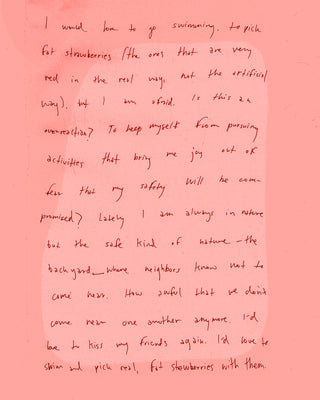 I would love to go swimming. to pick
fat strawberries (the ones that are very
red in the real way, not the artificial
way). but I am afraid. Is this an
overreaction? To keep myself from pursuing
activities that bring me joy out of
fear that my safety will be com-
promised? Lately I am always in nature
but the safe kind of nature - the
backyard_where neighbors know not to
come near. How awful that we don't
come near one another anymore. I'd
love to kiss my friends again. I'd love to
swim and pick real, fat stawberries with them.